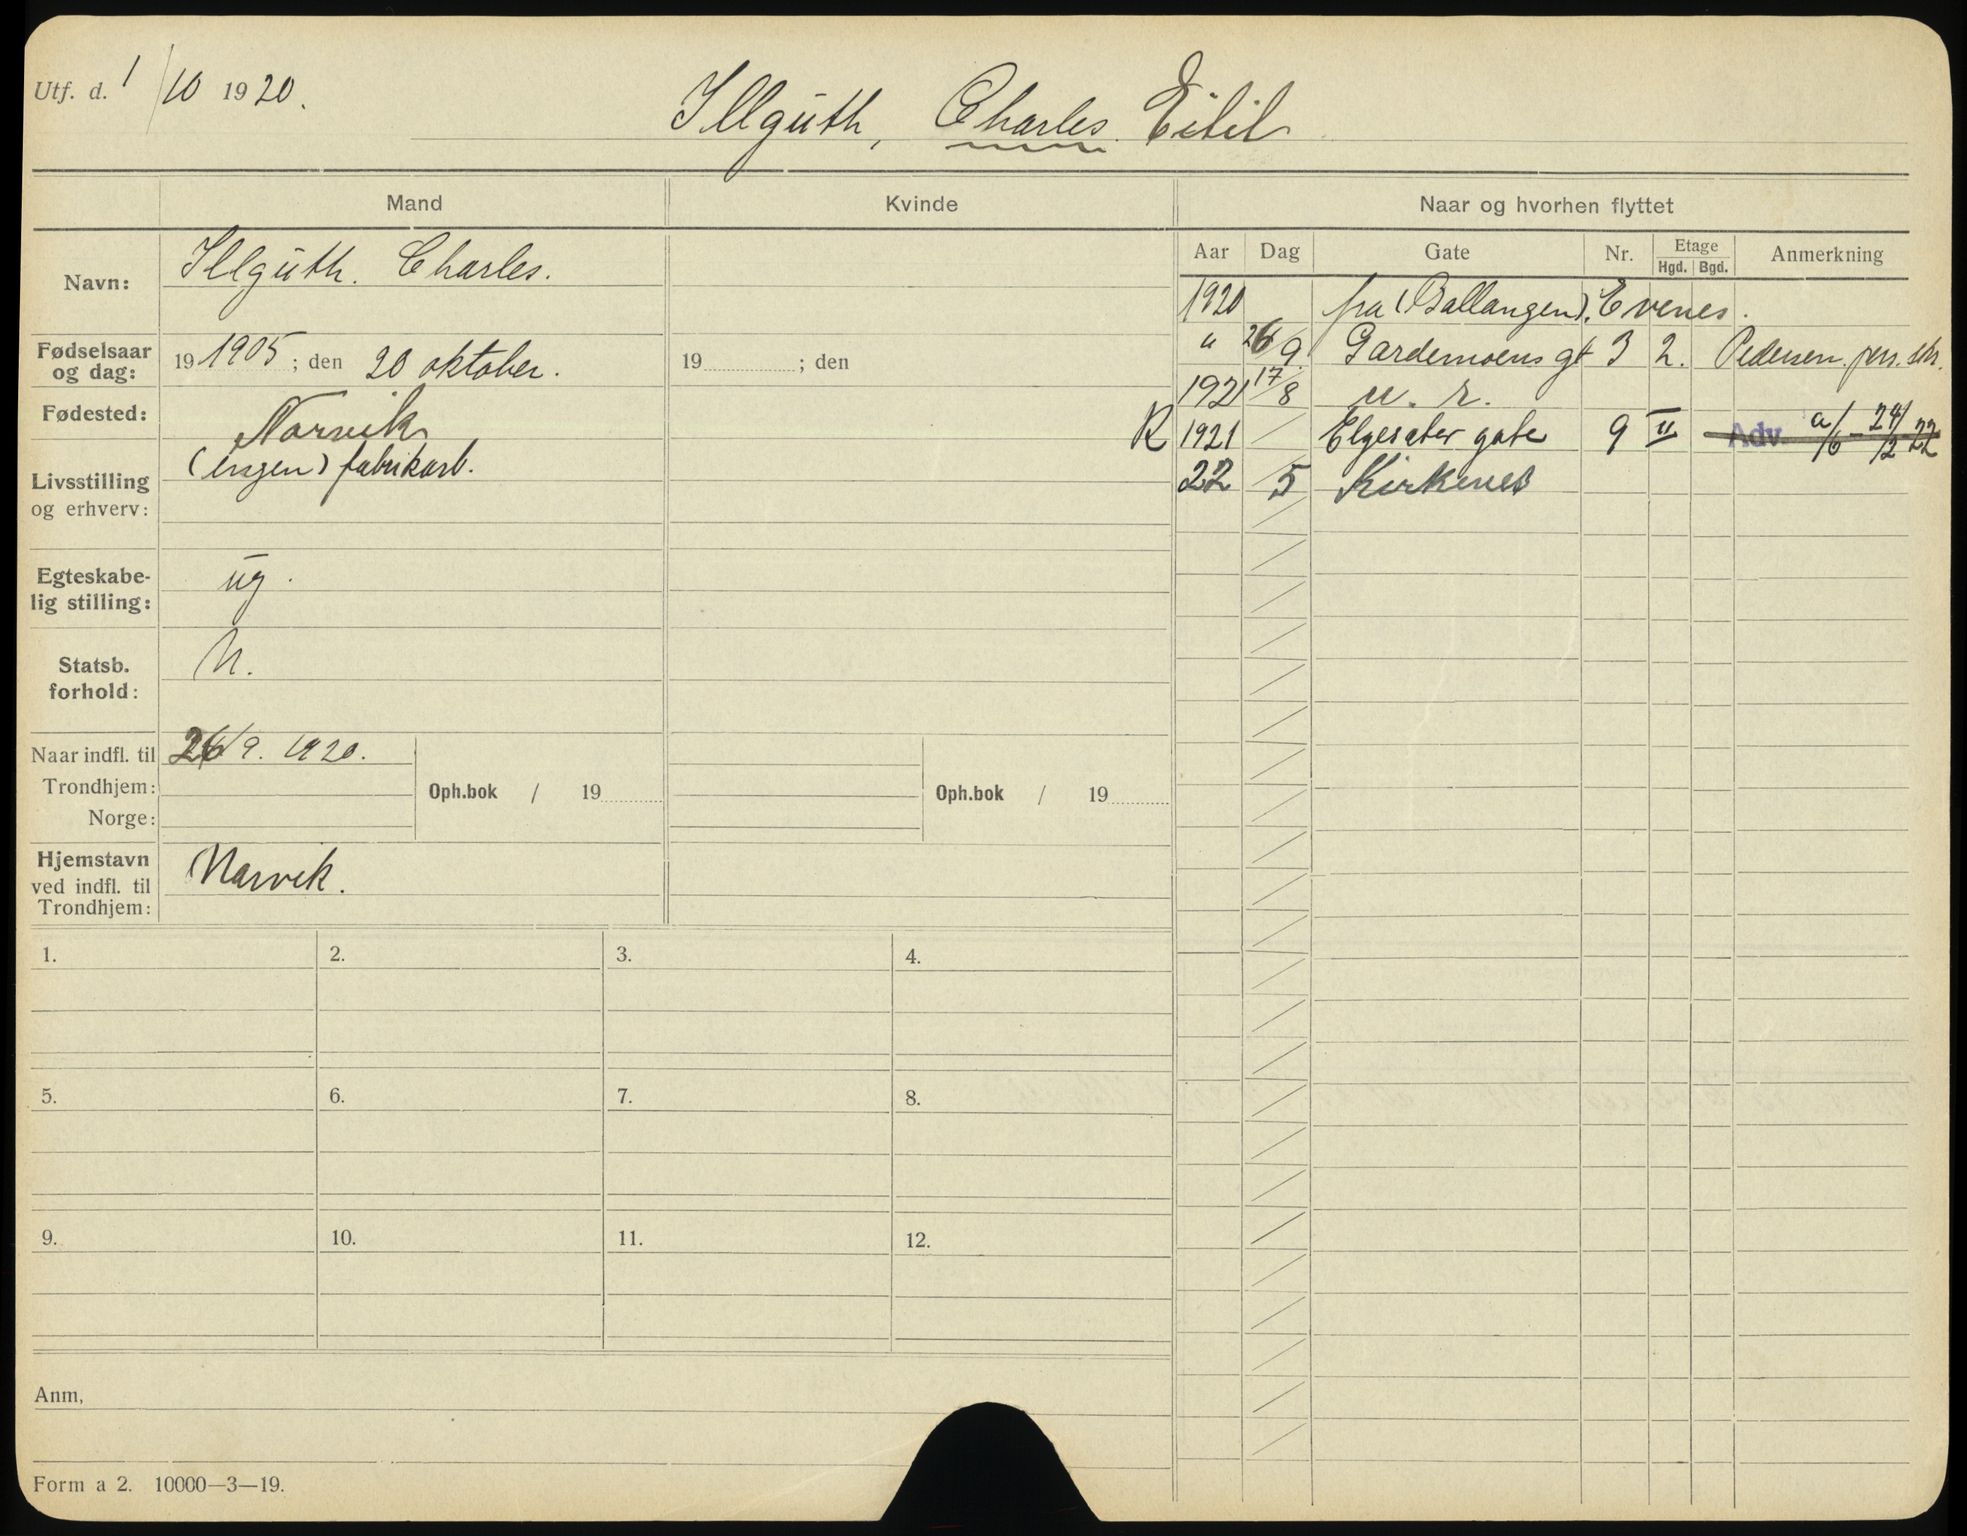 Utf. d. 1/10 1920.
Illguth, Charles Eitil
Mand
Kvinde
Naar og hvorhen flyttet
Aar Dag Gate Nr. Etage Hgd. Bgd. Anmerkning
Navn: Illguth. Charles.
Fødselsaar og dag: 19 1905; den 20 oktober. 19 ; den
Fødested: Narvik
Livsstilling og erhverv: (ingen) fabrikarb.
Egteskabelig stilling: ug.
Statsb. forhold: N.
Naar indfl. til 26/9. 1920.
Trondhjem: Oph.bok / 19 Oph.bok / 19
Norge:
Hjemstavn ved indfl. til Trondhjem: Narvik.
1920 fra (Ballangen). Evenes.
" 26/9. Gardemoens gt 3 2. Pedersen. pers. skr.
1921 17/8 u. r.
R 1921 / Elgesæter gate 9 II Adv. a/6 - 24/2 22
22 /5 Kirkenes
1. 2. 3. 4.
5. 6. 7. 8.
9. 10. 11. 12.
Anm,
Form a 2. 10000—3—19.